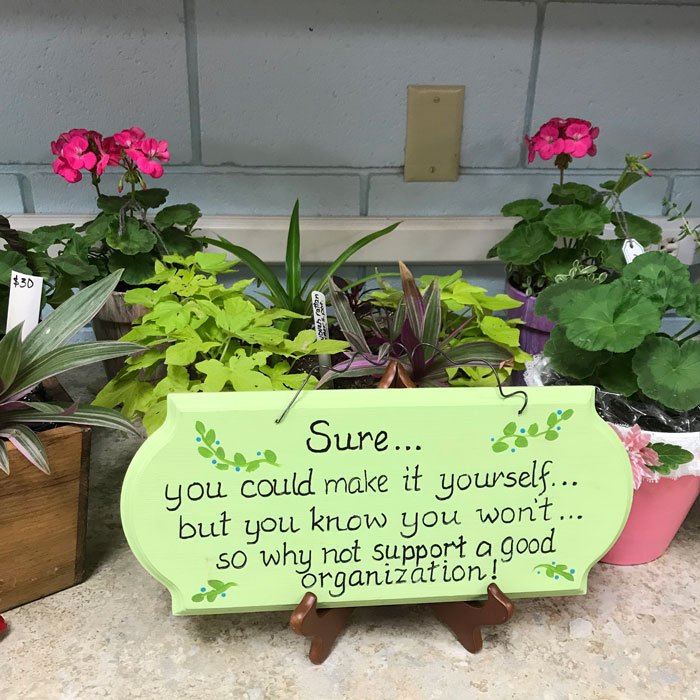 $30
Sure...
you could make it yourself...
but you know you won't...
so why not support a good
organization!